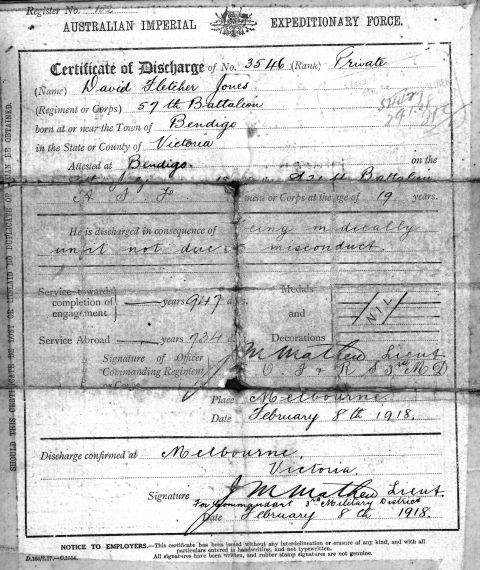 Register No.
AUSTRALIAN IMPERIAL EXPEDITIONARY FORCE.
Certificate of Discharge of No. 3546 (Rank) Private
(Name) David Fletcher Jones
(Regiment or Corps) 57th Battalion
born at or near the Town of Bendigo
in the State or County of Victoria
Attested at Bendigo. on the
21st Battalion
A I F ment or Corps at the age of 19 years.
He is discharged in consequence of being medically
unfit not due to misconduct.
Service towards completion of engagement — years 947 days.
Service Abroad — years 734 days.
Medals and Decorations NIL
Signature of Officer Commanding Regiment or Corps J M Mathew Lieut
3rd M D
Place Melbourne
Date February 8th 1918.
Discharge confirmed at Melbourne.
Victoria
Signature J M Mathew Lieut.
For Commandant 3rd Military District
Date February 8th 1918.
NOTICE TO EMPLOYERS.—This certificate has been issued without any interdelineation or erasure of any kind, and with all
particulars entered in handwriting, and not typewritten.
All signatures have been written, and rubber stamp signatures are not genuine.
SHOULD THIS CERTIFICATE BE LOST OR MISLAID NO DUPLICATE OF IT CAN BE OBTAINED.